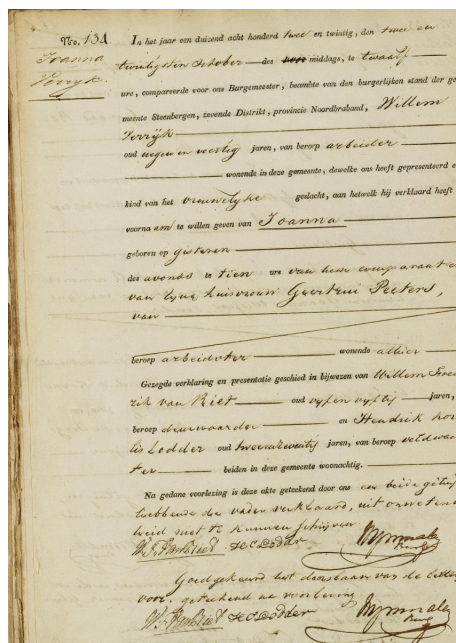 No. 134.
Joanna
Verryk.
In het jaar een duizend acht honderd twee en twintig, den twee en
twintigsten October des middags, te twaalf
ure, compareerde voor ons Burgemeester, beambte van den burgerlijken stand der ge
meente Steenbergen, zevende Distrikt, provincie Noordbraband, Willem
Verrijk
oud negen en veertig jaren, van beroep arbeider
wonende in deze gemeente, dewelke ons heeft gepresenteerd e
kind van het vrouwelyke geslacht, aan hetwelk hij verklaard heeft
voornaam te willen geven van Joanna
geboren op gisteren
des avonds te tien ure van hem comparant e
van zyne huisvrouw Geertrui Peeters,
van
beroep arbeidster wonende alhier
Gezegde verklaring en presentatie geschied in bijwezen van Willem Fred
rik van Riet oud vyf en vyftig jaren,
beroep deurwaarder en Hendrik
Lodder oud jaren, van beroep veldwach
ter beiden in deze gemeente woonachtig.
Na gedane voorlezing is deze akte geteekend door ons en beide getuig
hebbende de vader verklaard, uit onweten
heid niet te kunnen schrijven
W. F. van Riet H. C. Lodder
Goedgekeurd het doorhalen van de letter
voor. geteekend na voorlezing
W. F. van Riet H. C. Lodder